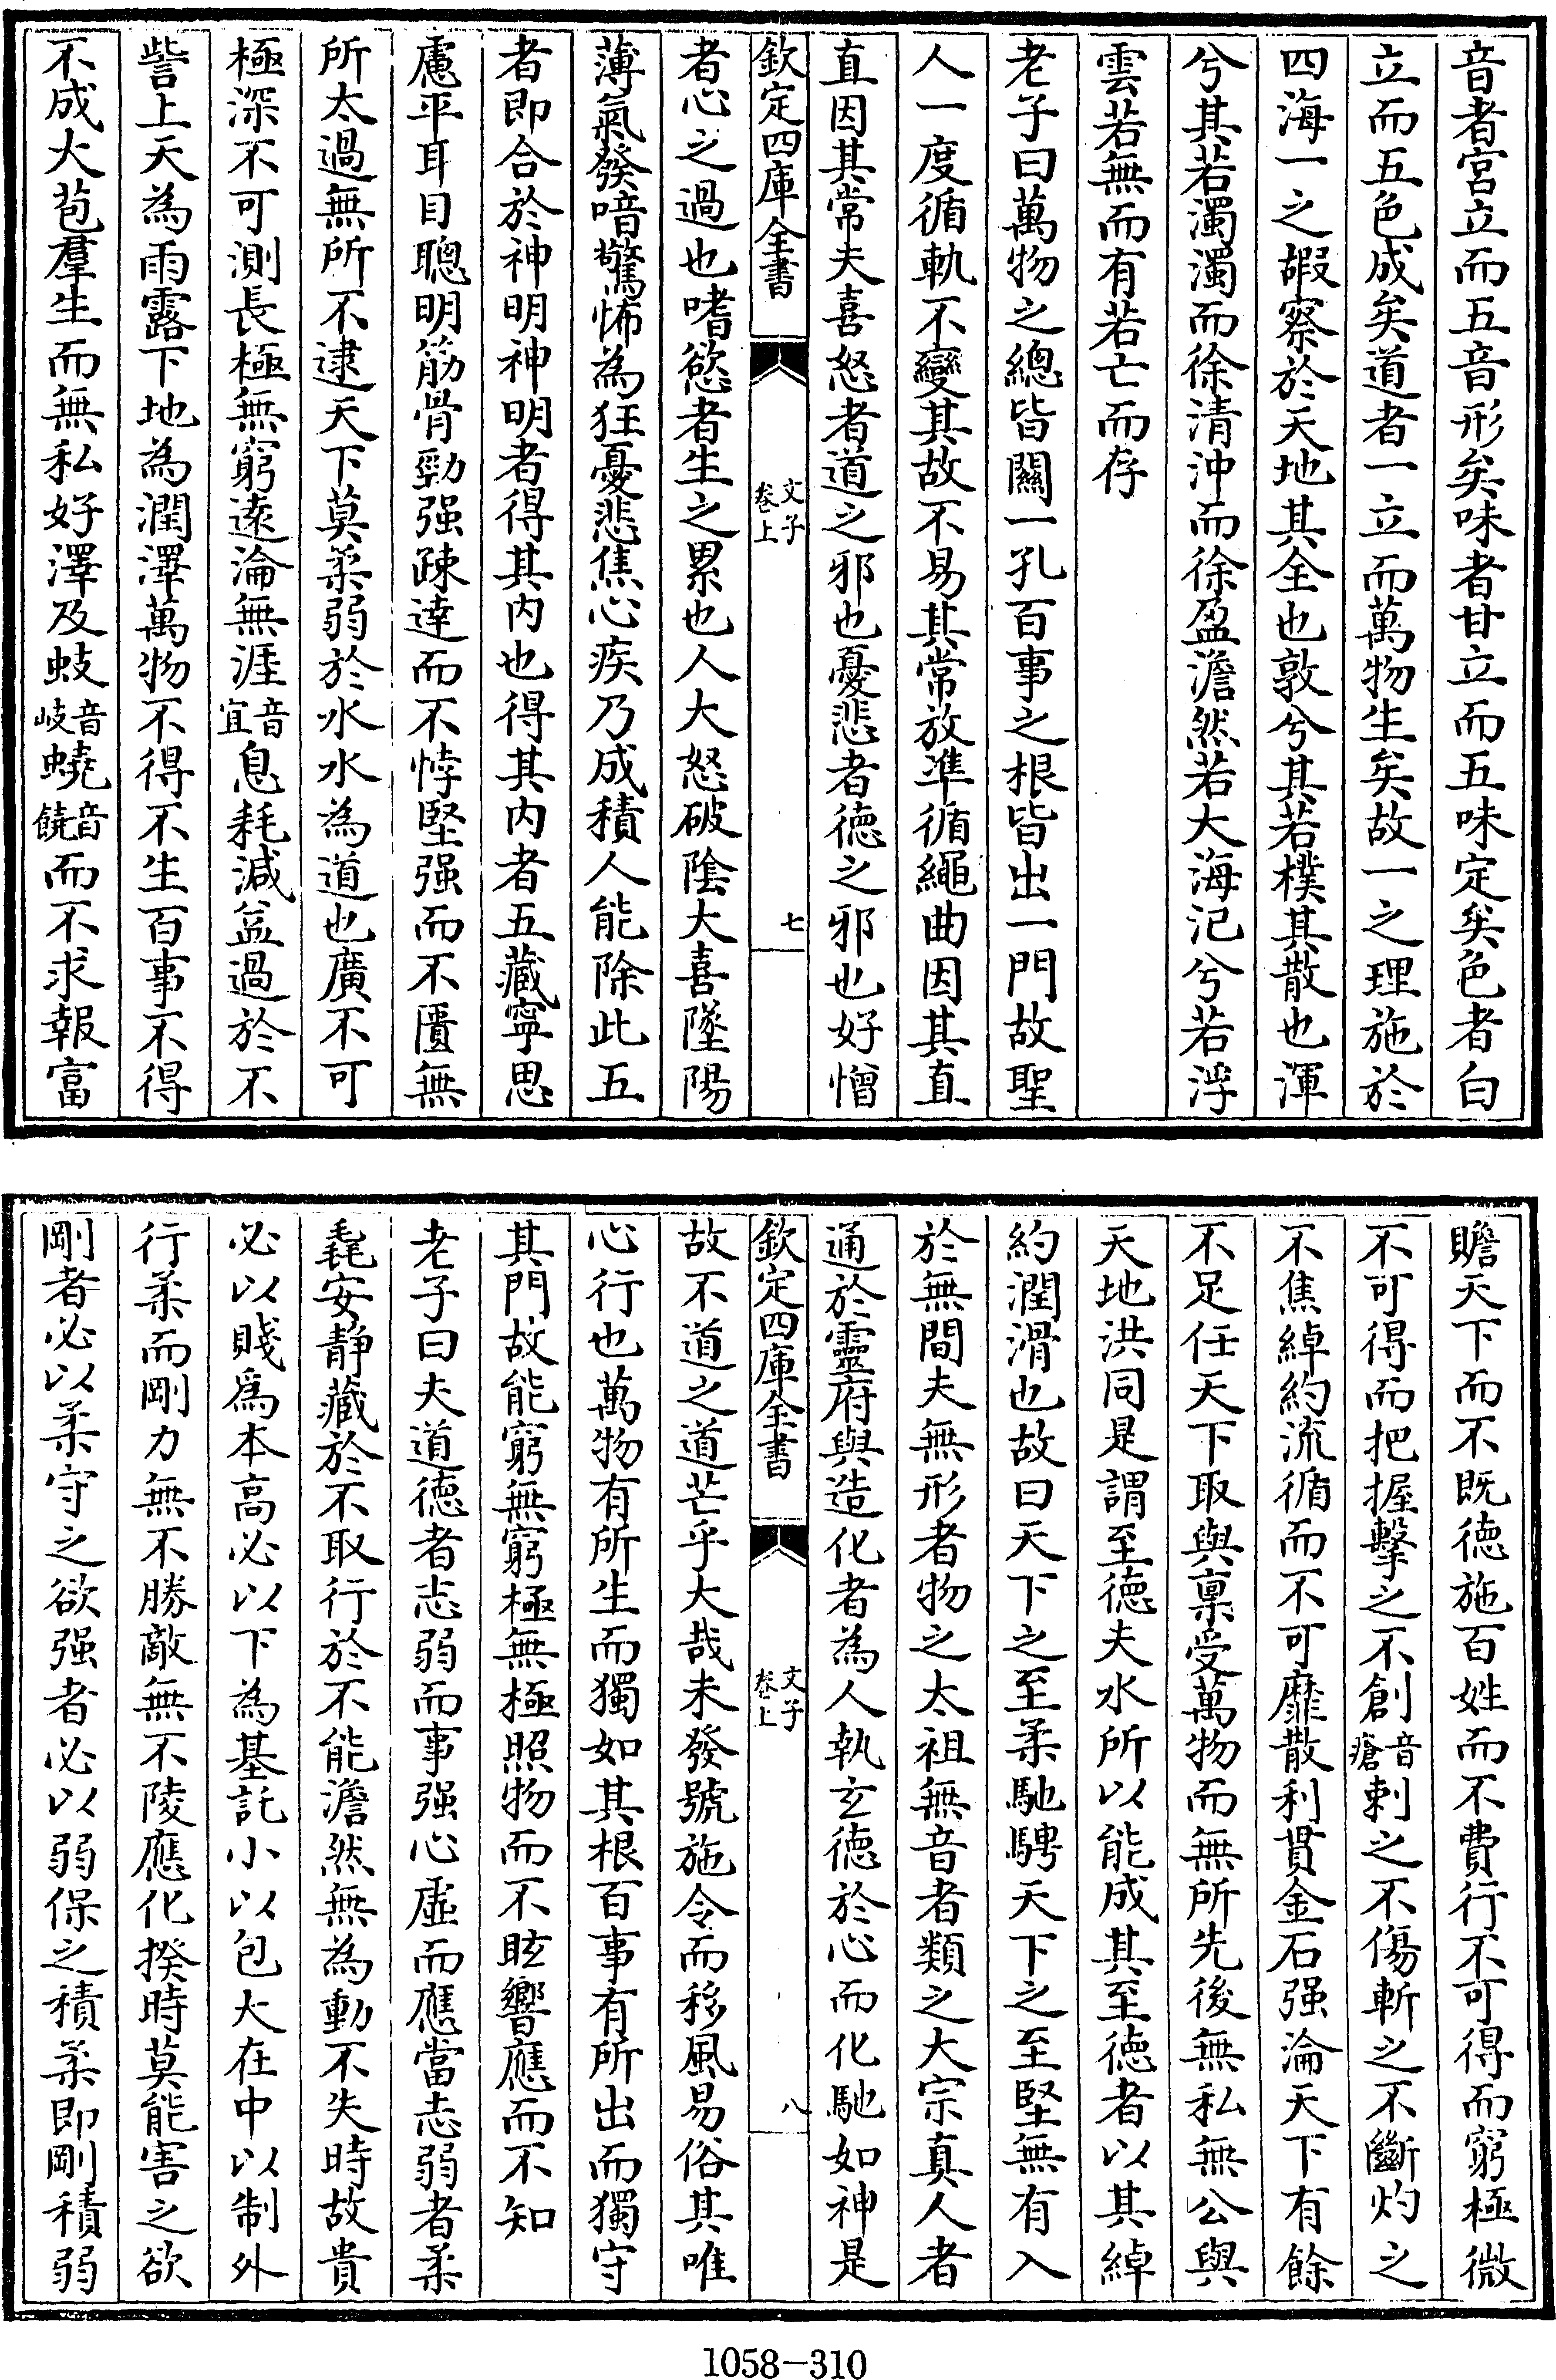 音者宮立而五音形矣味者甘立而五味定矣色者白
立而五色成矣道者一立而萬物生矣故一之理施於
四海一之嘏察於天地其全也敦兮其若樸其散也渾
兮其若濁濁而徐清沖而徐盈澹然若大海汜兮若浮
雲若無而有若亡而存
老子曰萬物之總皆闗一孔百事之根皆出一門故聖
人一度循軌不變其故不易其常放準循繩曲因其直
直因其常夫喜怒者道之邪也憂悲者徳之邪也好憎
欽定四庫全書
文子
卷上
七
者心之過也嗜慾者生之累也人大怒破陰大喜墜陽
薄氣發喑驚怖為狂憂悲焦心疾乃成積人能除此五
者即合於神明神明者得其内也得其内者五藏寧思
慮平耳目聰明筋骨勁强疎達而不悖堅强而不匱無
所太過無所不逮天下莫柔弱於水水為道也廣不可
極深不可測長極無窮遠淪無涯音宜息耗減益過於不
訾上天為雨露下地為潤澤萬物不得不生百事不得
不成大苞羣生而無私好澤及蚑音岐蟯音饒而不求報富
贍天下而不既徳施百姓而不費行不可得而窮極微
不可得而把握擊之不創音瘡刺之不傷斬之不斷灼之
不焦綽約流循而不可靡散利貫金石强淪天下有餘
不足任天下取與稟受萬物而無所先後無私無公與
天地洪同是謂至徳夫水所以能成其至徳者以其綽
約潤滑也故曰天下之至柔馳騁天下之至堅無有入
於無間夫無形者物之太祖無音者類之大宗真人者
通於靈府與造化者為人執𤣥徳於心而化馳如神是
欽定四庫全書
文子
卷上
八
故不道之道芒乎大哉未發號施令而移風易俗其唯
心行也萬物有所生而獨如其根百事有所出而獨守
其門故能窮無窮極無極照物而不眩響應而不知
老子曰夫道徳者志弱而事强心虚而應當志弱者柔
毳安靜藏於不取行於不能澹然無為動不失時故貴
必以賤爲本高必以下為基託小以包大在中以制外
行柔而剛力無不勝敵無不陵應化揆時莫能害之欲
剛者必以柔守之欲强者必以弱保之積柔即剛積弱
1058-310